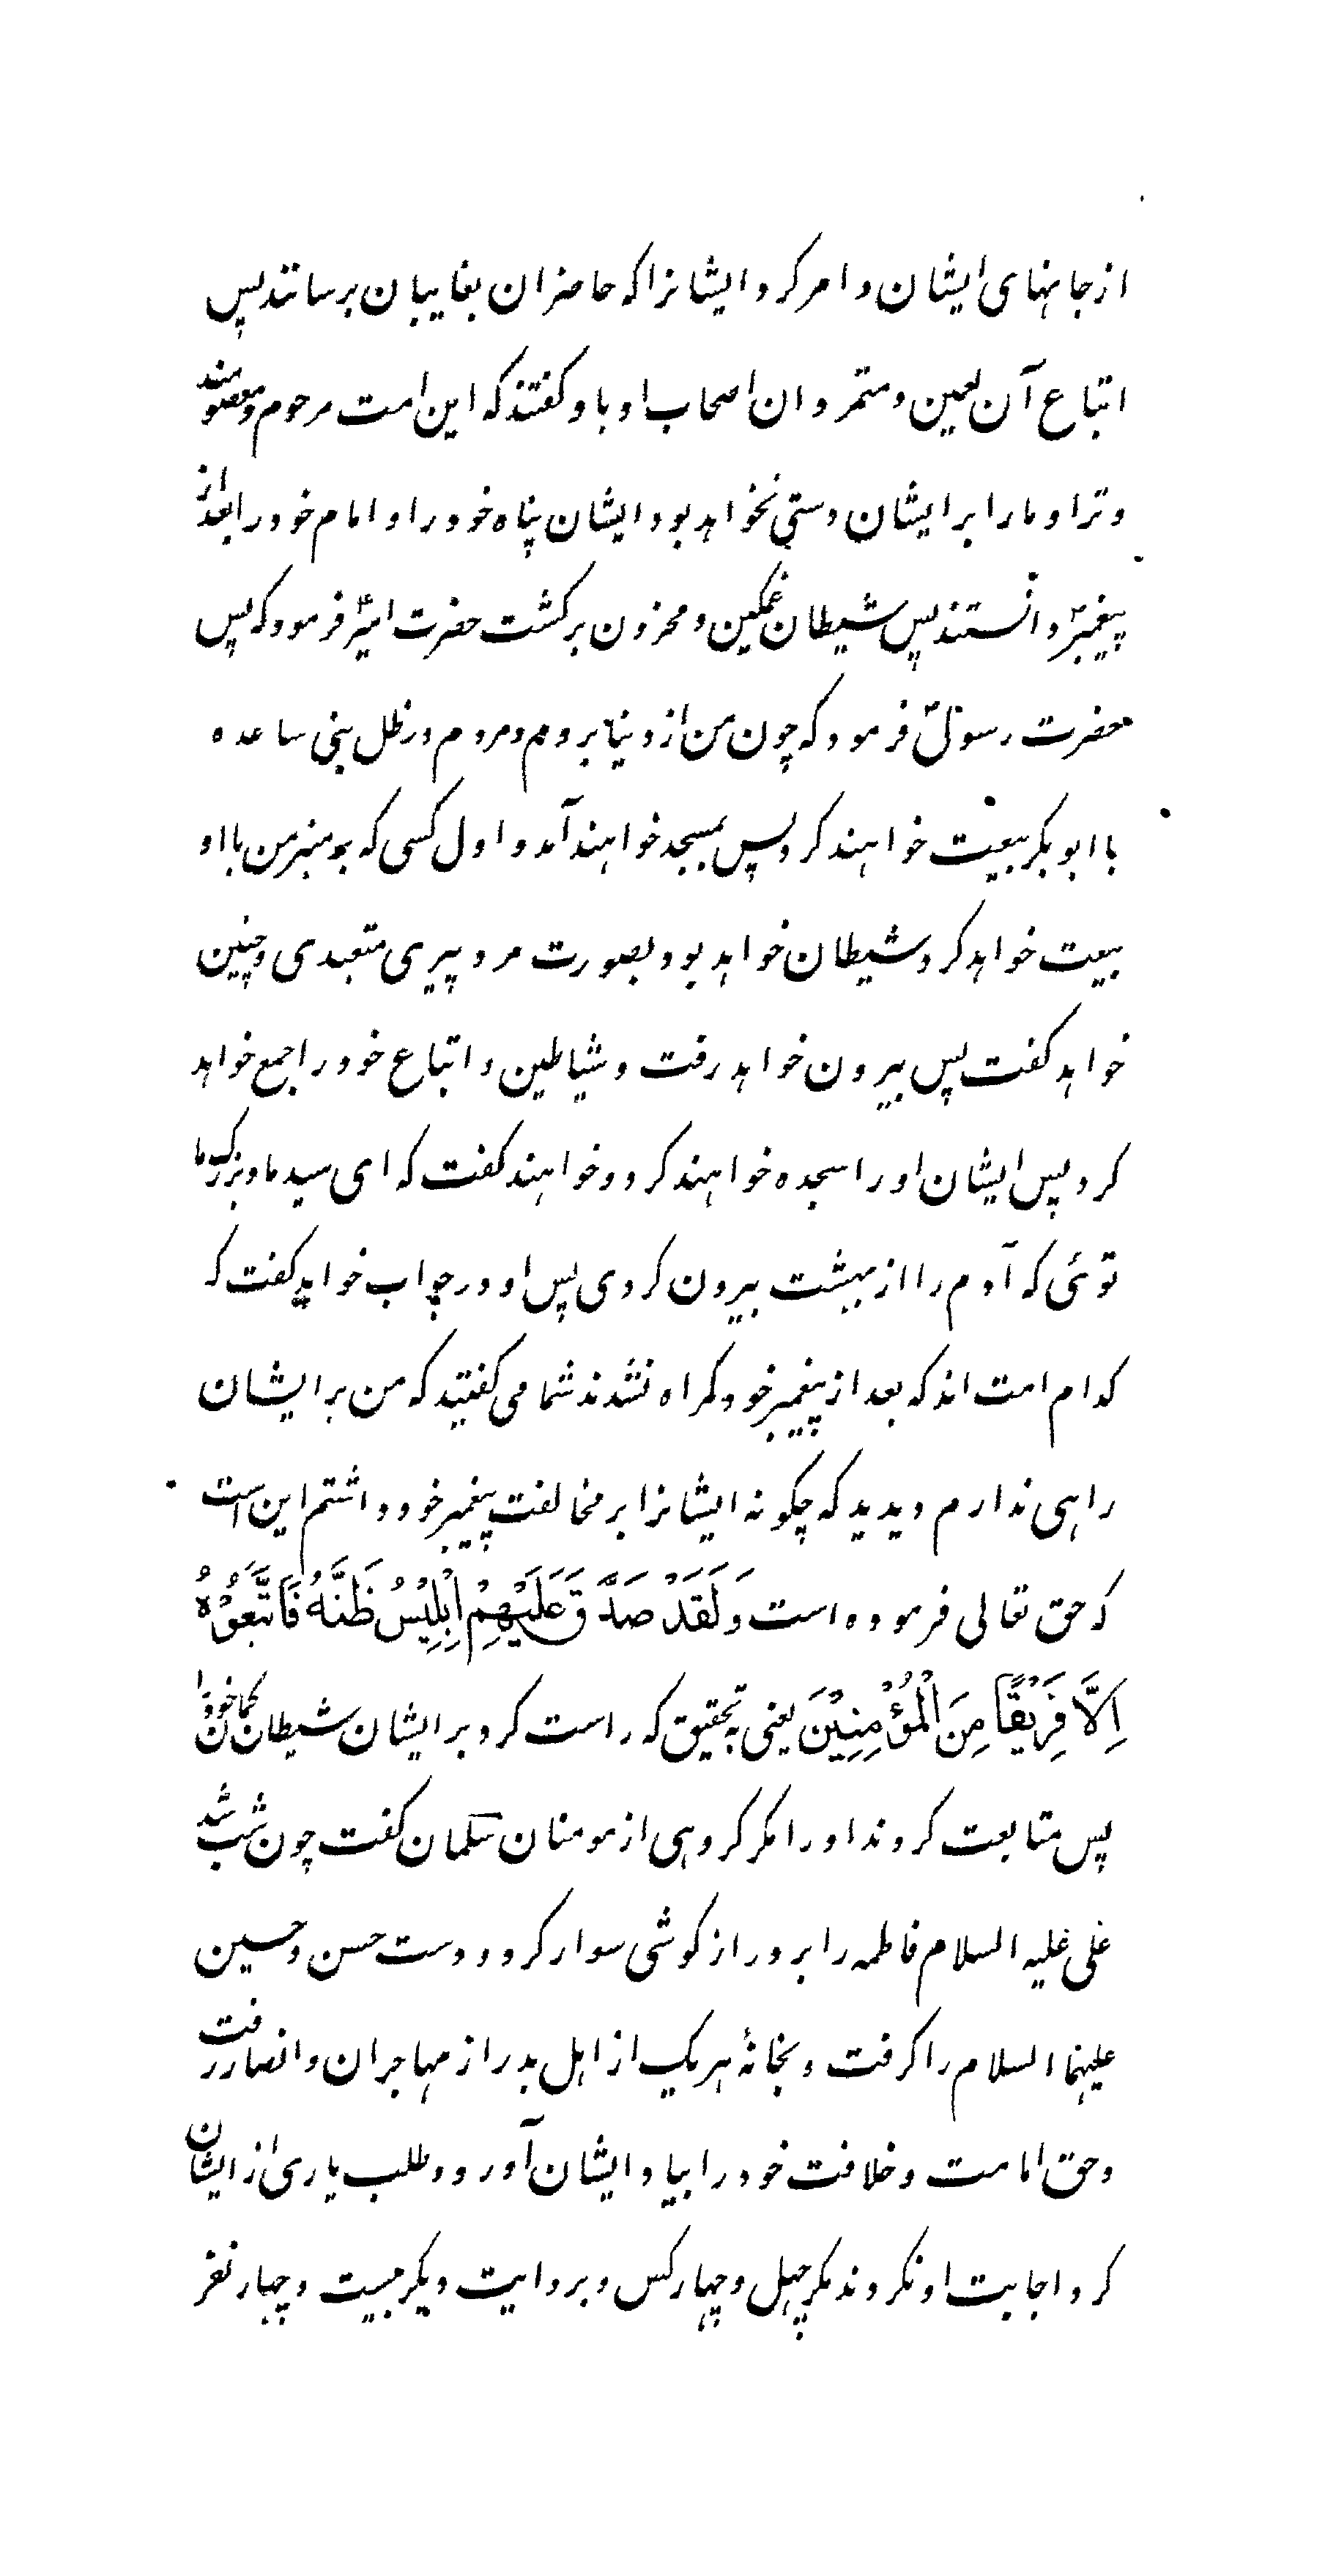 از جانهای ایشان و امر کرد ایشانرا که حاضران بغایبان برسانند پس
اتباع آن لعین و متمردان اصحاب او باو کفتند که این امت مرحوم و معصومند
و ترا و ما را بر ایشان دستی نخواهد بود ایشان پناه خود را و امام خود را بعد از
پیغمبرؐ دانستند پس شیطان غمکین و محزون برکشت حضرت امیرؑ فرمود که پس
حضرت رسولؐ فرمود که چون من از دنیا بروم و مردم در ظل بنی ساعده
با ابوبکر بیعت خواهند کرد پس بمسجد خواهند آمد و اول کسی که بر منبر من با او
بیعت خواهد کرد شیطان خواهد بود بصورت مرد پیری متعبدی و چنین
خواهد کفت پس بیرون خواهد رفت و شیاطین و اتباع خود را جمع خواهد
کرد پس ایشان او را سجده خواهند کرد و خواهند کفت که ای سید ما و بزرک ما
توئی که آدم را از بهشت بیرون کردی پس او در جواب خواهد کفت که
کدام امت اند که بعد از پیغمبر خود کمراه نشدند شما می کفتید که من بر ایشان
راهی ندارم دیدید که چکونه ایشانرا بر مخالفت پیغمبر خود داشتم این است
که حق تعالی فرموده است وَلَقَدْ صَدَّقَ عَلَيْهِمْ اِبْلِيْسُ ظَنَّهُ فَاتَّبَعُوْهُ
اِلَّا فَرِيْقًا مِنَ الْمُؤْمِنِيْنَ یعنی به تحقیق که راست کرد بر ایشان شیطان کمان خود را
پس متابعت کردند او را مکر کروهی از مومنان سلمان کفت چون شب شد
علی علیه السلام فاطمه را بر دراز کوشی سوار کرد و دست حسن و حسین
علیهما السلام را کرفت و بخانهٔ هر یک از اهل بدر از مهاجران و انصار رفت
و حق امامت و خلافت خود را بیاد ایشان آورد و طلب یاری از ایشان
کرد اجابت او نکردند مکر چهل و چهار کس و بروایت دیکر بیست و چهار نفر